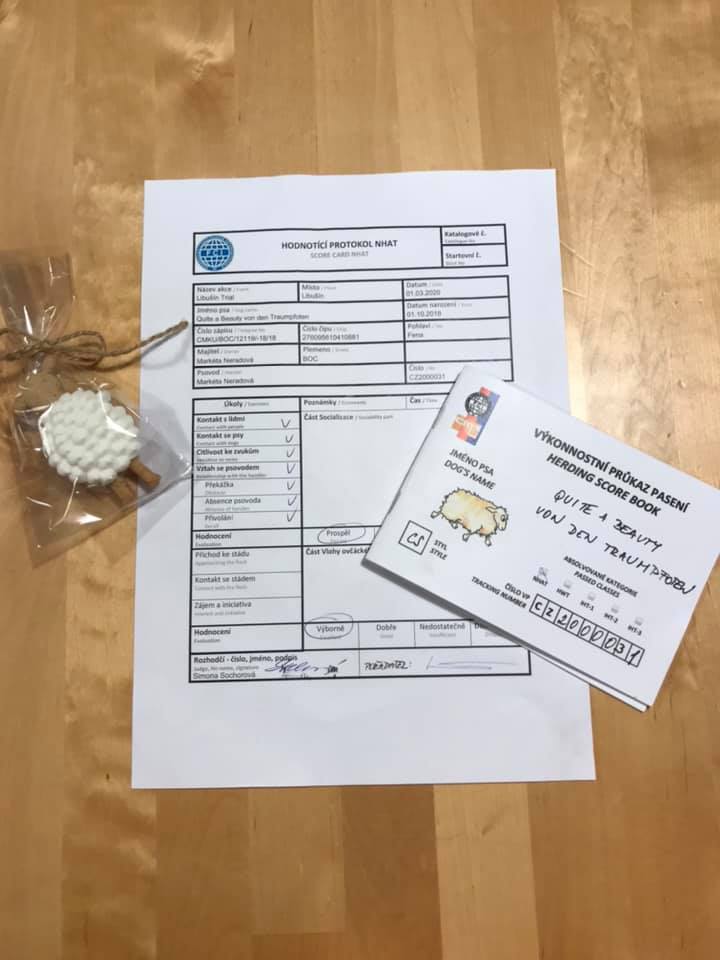 FCI
HODNOTÍCÍ PROTOKOL NHAT
SCORE CARD NHAT
Katalogové č.
Catalogue No
Startovní č.
Start No
Název akce / Event
Libušín Trial
Místo / Place
Libušín
Datum / Date
01.03.2020
Jméno psa / Dog name
Quite a Beauty von den Traumpfoten
Datum narození / Born
01.10.2018
Číslo zápisu / Pedigree No
CMKU/BOC/12119/-18/18
Číslo čipu / Chip
276095610410881
Pohlaví / Sex
Fena
Majitel / Owner
Markéta Neradová
Plemeno / Breed
BOC
Psovod / Handler
Markéta Neradová
Číslo / No
CZ2000031
Úkoly / Exercises
Poznámky / Comments
Čas / Time
Kontakt s lidmi
Contact with people
Část Socialisace / Sociability part
Kontakt se psy
Contact with dogs
Citlivost ke zvukům
Sensitive to noise
Vztah se psovodem
Relationship with the handler
Překážka
Obstacle
Absence psovoda
Absence of handler
Přivolání
Recall
Hodnocení
Evaluation
Prospěl
Příchod ke stádu
Approaching the flock
Část Vlohy ovčácké
Kontakt se stádem
Contact with the flock
Zájem a iniciativa
Interest and initiative
Hodnocení
Evaluation
Výborně
Excellent
Dobře
Good
Nedostatečně
Insufficient
Rozhodčí - číslo, jméno, podpis
Judge, No name, signature
Simona Sochorová
POŘADATEL:
VÝKONNOSTNÍ PRŮKAZ PASENÍ
HERDING SCORE BOOK
JMÉNO PSA
DOG'S NAME
QUITE A BEAUTY
VON DEN TRAUMPFOTEN
CS
STYL
STYLE
ABSOLVOVANÉ KATEGORIE
PASSED CLASSES
NHAT
HWT
IHT-1
IHT-2
IHT-3
ČÍSLO VP
TRACKING NUMBER
CZ2000031